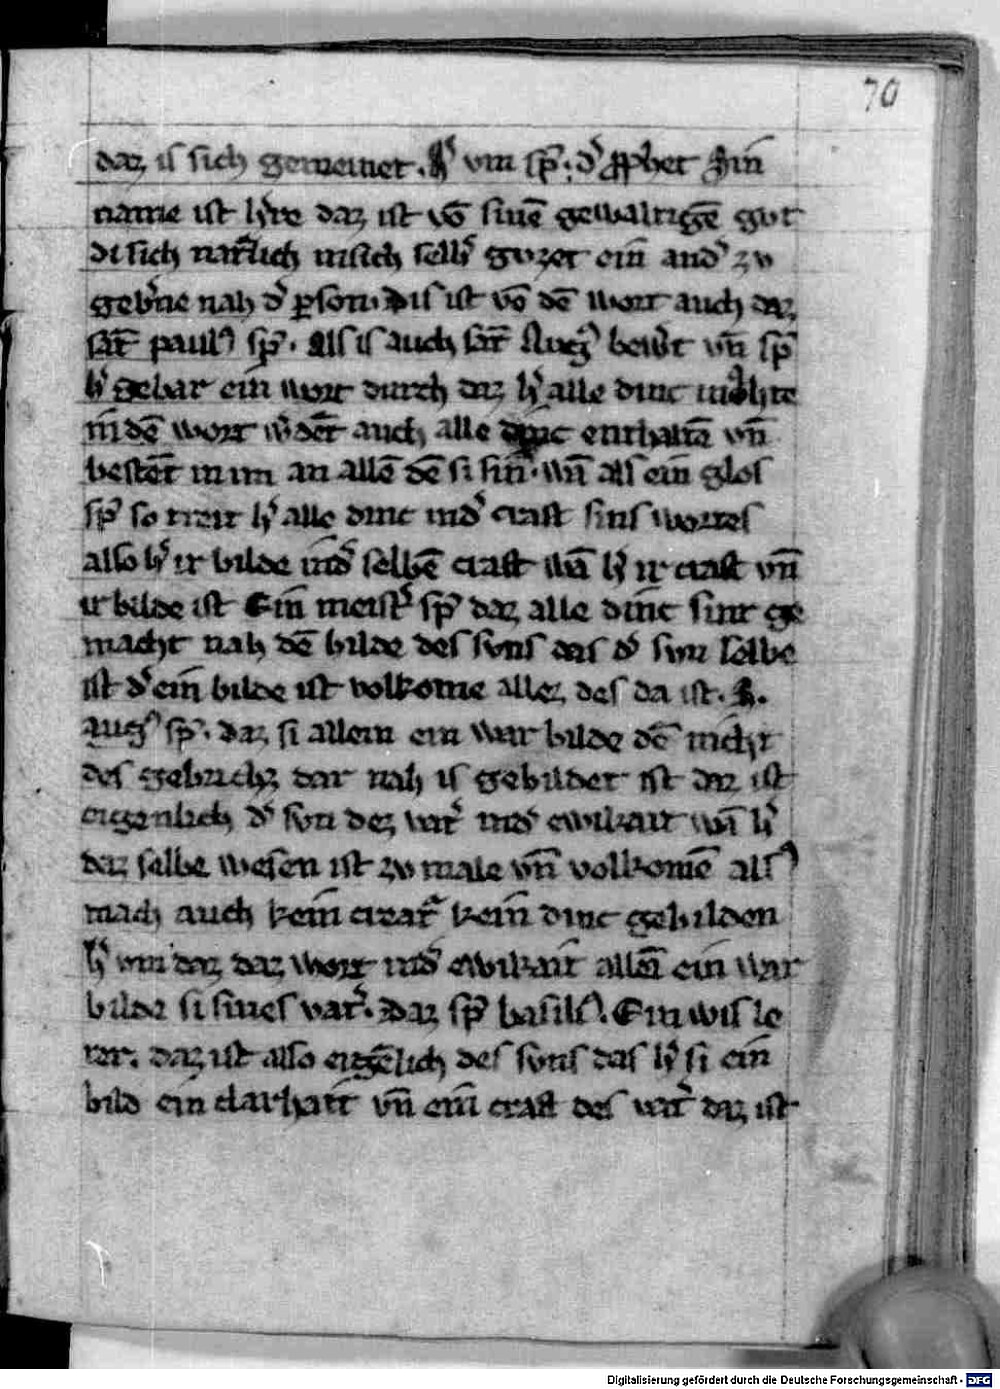 70
daz is sich gemeinet. vm sp̄. d' ꝓphet Sin
name ist h're daz ist vō sinē gewaltigē gvt
di sich nat'lich insich selb' gvzet ein and' zv
geb'ne nah d' ꝑson. Dis ist vō dē wort auch daz
sāt paul' sp̄. Als is auch sāt Aug' bew't vn̄ sp̄
h' gebar ein wort durch daz h' alle dinc mohte
in dē wort w'dēt auch alle dinc enthaltē vn̄
bestēt in im an allē dē si sin. vn̄ als ein glos
sp̄ so treit h' alle dinc ind' craft sins wortes
also h' ir bilde ind' selbē craft wā h' ir craft vn̄
ir bilde ist Ein meist' sp̄ daz alle dinc sint ge
macht nah dē bilde des svns das d' svn selbe
ist d' ein bilde ist volkome allez des da ist. S.
aug' sp̄. daz si allein ein war bilde dē nicht
des gebrichz dar nah is gebildet ist daz ist
eigenlich d' svn dez vat' ind' ewikait wā h'
daz selbe wesen ist zv male vn̄ volkomē als'
mach auch kein creat' kein dinc gebilden
h' vm daz daz wort ind' ewikait allei ein war
bilde si sines vat'. Daz sp̄ basili'. Ein wis le
rer. daz ist also eigēlich des svns das h' si ein
bild ein clarhait vn̄ ein craft des vat' daz ist
Digitalisierung gefördert durch die Deutsche Forschungsgemeinschaft - DFG